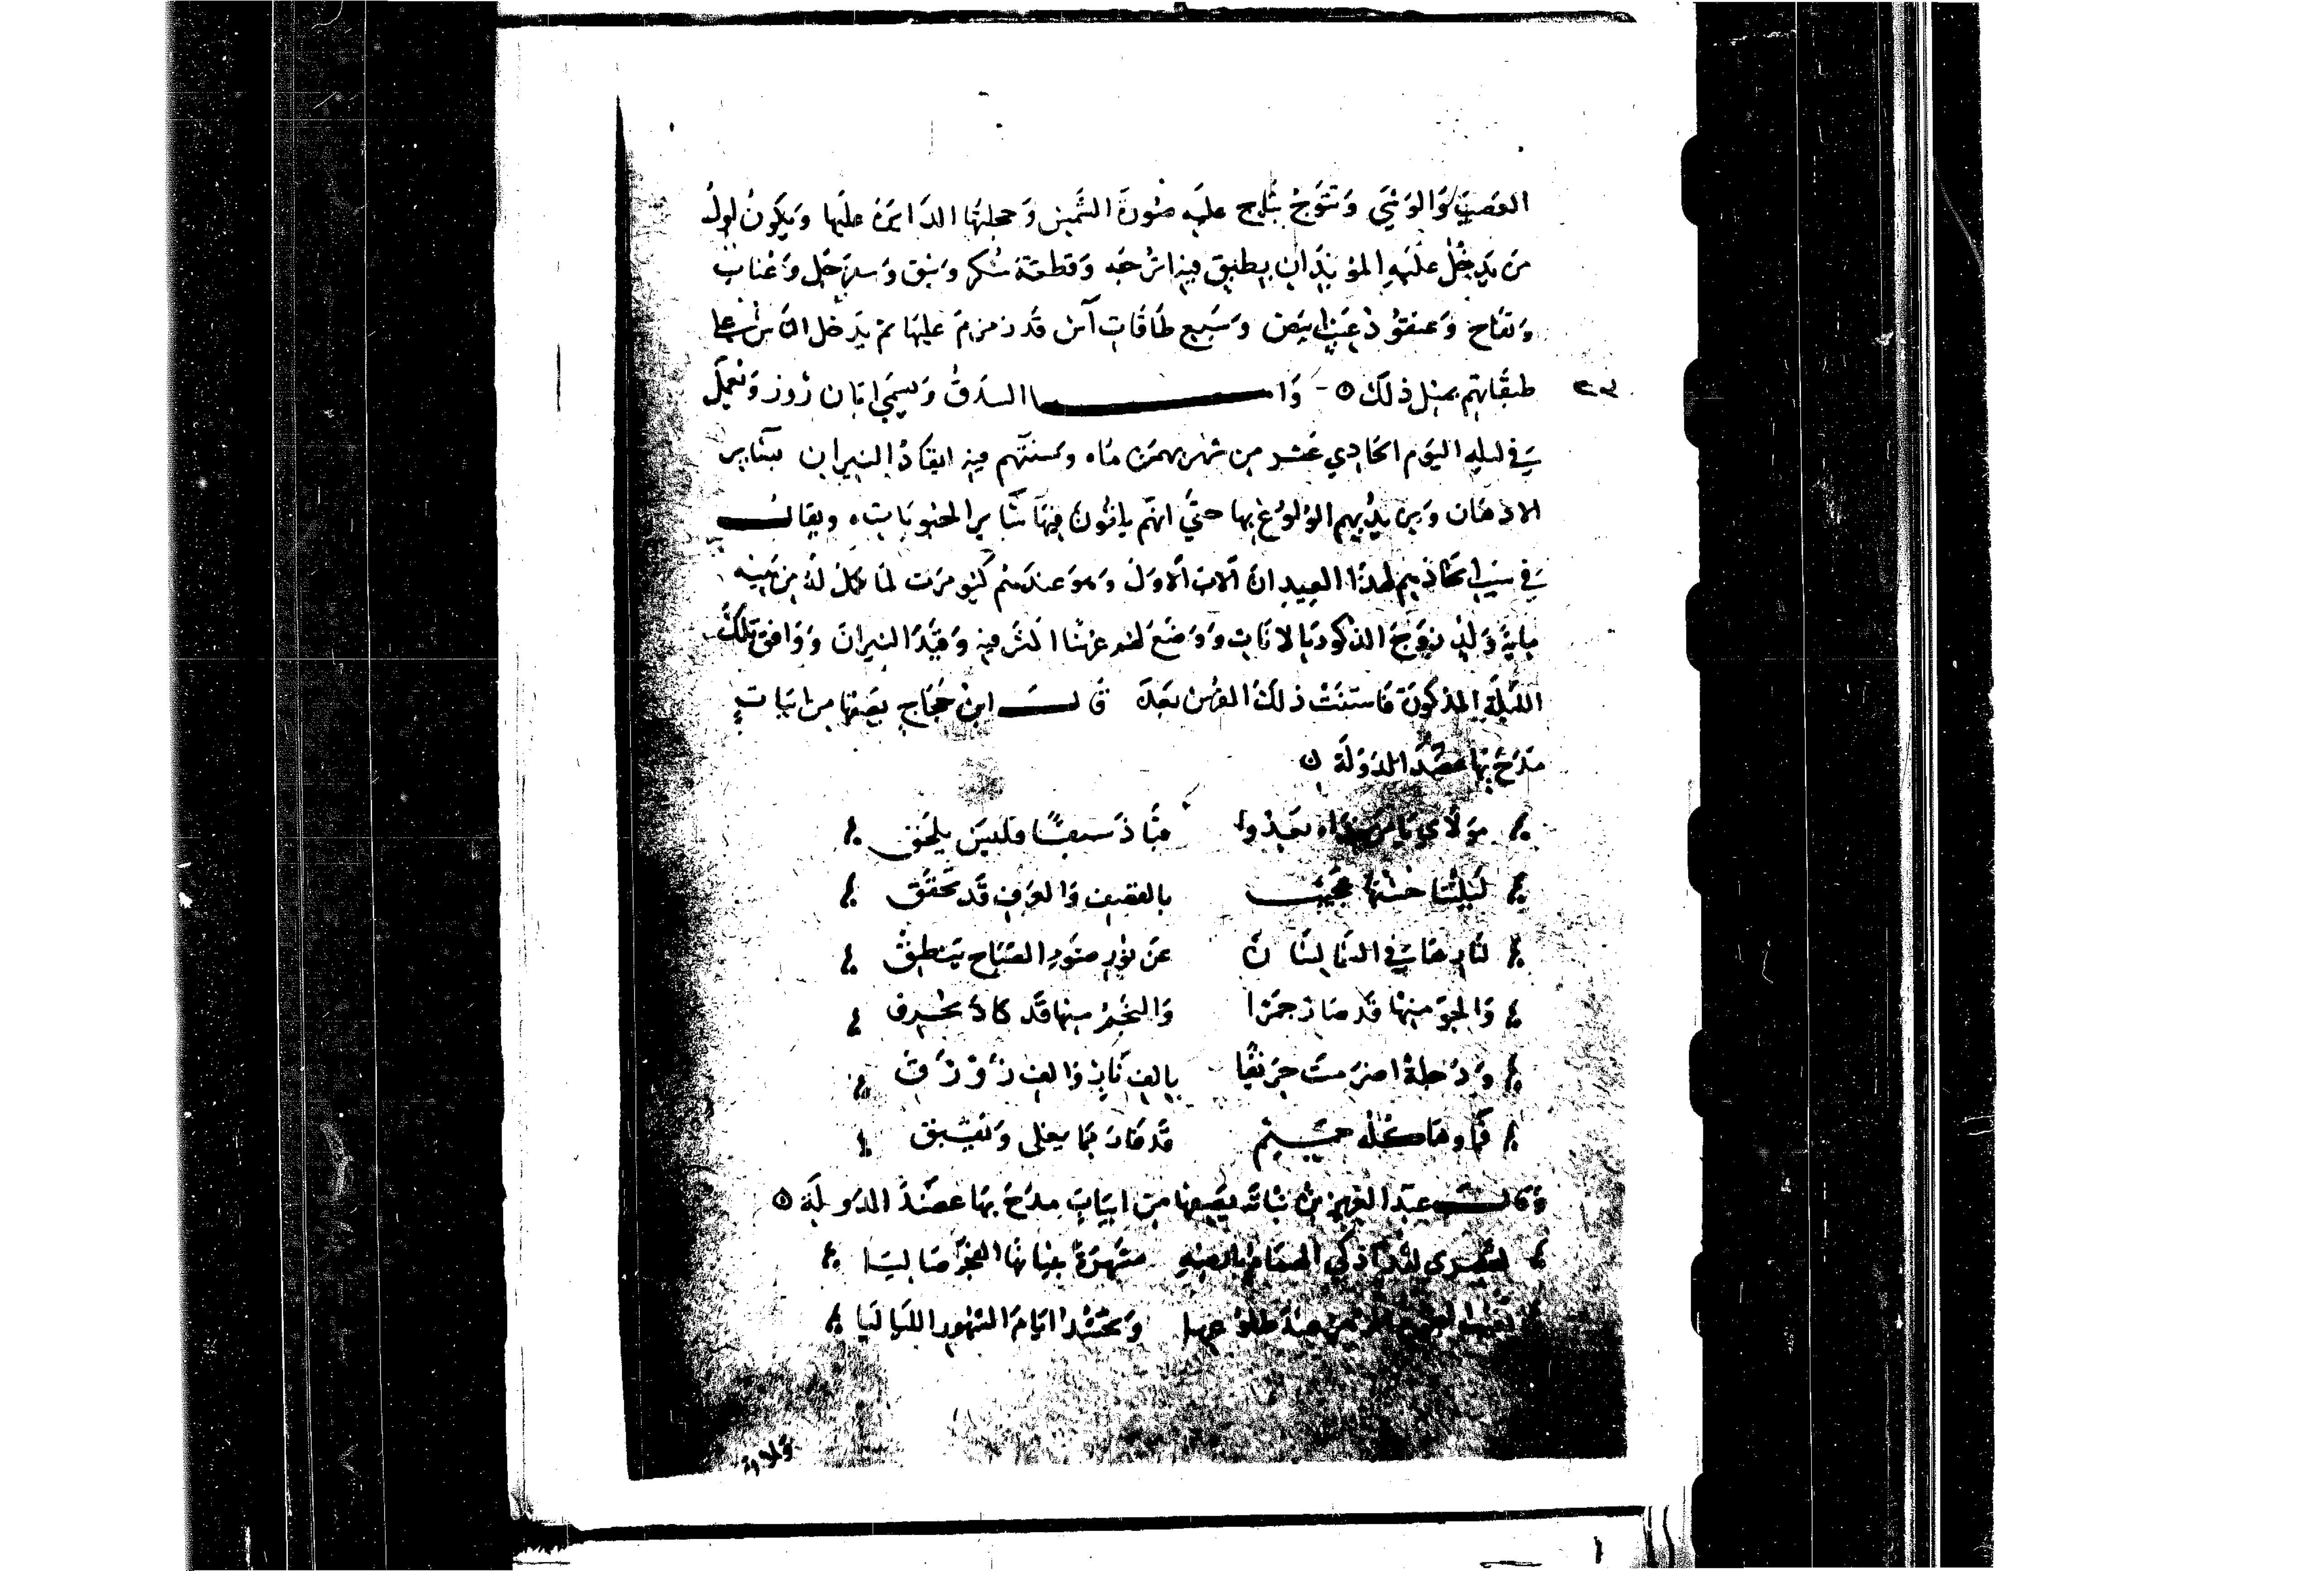 القصب والوشي وتتوج بتاج عليه صورة الشمس وعجلتها الدايرة عليها ويكون اول
من يدخل عليه الموبذان بطبق فيه اترجه وقطعة سكر ونبق وسفرجل وعناب
وتفاح وعنقود عنب ابيض وسبع طاقات آس قد زمزم عليها ثم يدخل الناس على
طبقاتهم بمثل ذلك ٥ واما السدق ويسمى ابان روز ويعمل
في ليله اليوم الحادي عشر من شهر بهمن ماه وسنتهم فيه ايقاد النيران بسائر
الادهان والولوع بها حتى انهم يلقون فيها سائر الحبوبات ويقال
في سبب اتخاذهم لهذا العيد ان الاب الاول وهو عندهم كيومرت لما كمل له من بنيه
ماية ولد زوج الذكور بالاناث ووضع لهم عرسا اكثر فيه وقيد النيران ووافق تلك
الليلة المذكورة فاستنت ذلك الفرس بعده قال ابن حجاج يصفها من ابيات
مدح بها عضد الدولة ٥
مولاي يا من نداه يعدو ففات سبقا فليس يلحق
ليلتنا حسنها عجيب بالقصف والعزف قد تحقق
لنارها في السما لسان عن نور ضوء الصباح ينطق
والجو منها قد صار جمرا والنجم منها قد كاد يحرق
ودجلة اضرمت حريقا بالف نار والف زورق
فماوها كله حميم قد فار مما يغلى وبقبق
وقال عبد العزيز بن نباته يصفها من ابيات مدح بها عضد الدولة ٥
لعمري لقد اذكى الهمام بارضه مشهرة يعيا بها الفجر صاليا
تغيب النجوم الزهر عند طلوعها وتحسد ايام الشهور اللياليا
ولاوة